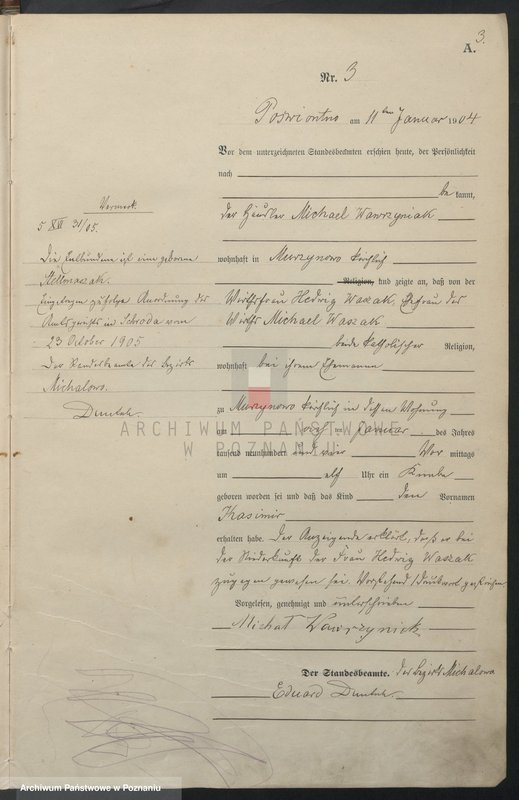 3.
A.
Nr. 3
am 11ten Januar 1904
Vor dem unterzeichneten Standesbeamten erschien heute, der Persönlichkeit
nach
be kannt,
der Häusler Michael Wawrzyniak
wohnhaft in Murzynowo kirchlich
Religion, und zeigte an, daß von der
Wirthsfrau Hedwig Waszak, Ehefrau des
Wirths Michael Waszak
beide katholischer Religion,
wohnhaft bei ihrem Ehemanne
zu Murzynowo kirchlich in dessen Wohnung
am ten Januar des Jahres
tausend neunhundert und vier Vor mittags
um elf Uhr ein Knabe
geboren worden sei und daß das Kind den Vornamen
Kasimir
erhalten habe. Der Anzeigende erklärt, daß er bei
der Niederkunft der Frau Hedwig Waszak
zugegen gewesen sei. Vorstehend 1 Druckwort gestrichen.
Vorgelesen, genehmigt und unterschrieben
Michał Wawrzyniak
Der Standesbeamte. des Bezirks Michalowo
Eduard
Vermerk.
31/05.
Die Entbundene ist eine geborene
Eingetragen zufolge Anordnung des
Amtsgerichts in Schroda vom
23 October 1905
Der Standesbeamte des Bezirks
Michalowo.
ARCHIWUM PAŃSTWOWE
W POZNANIU
Archiwum Państwowe w Poznaniu